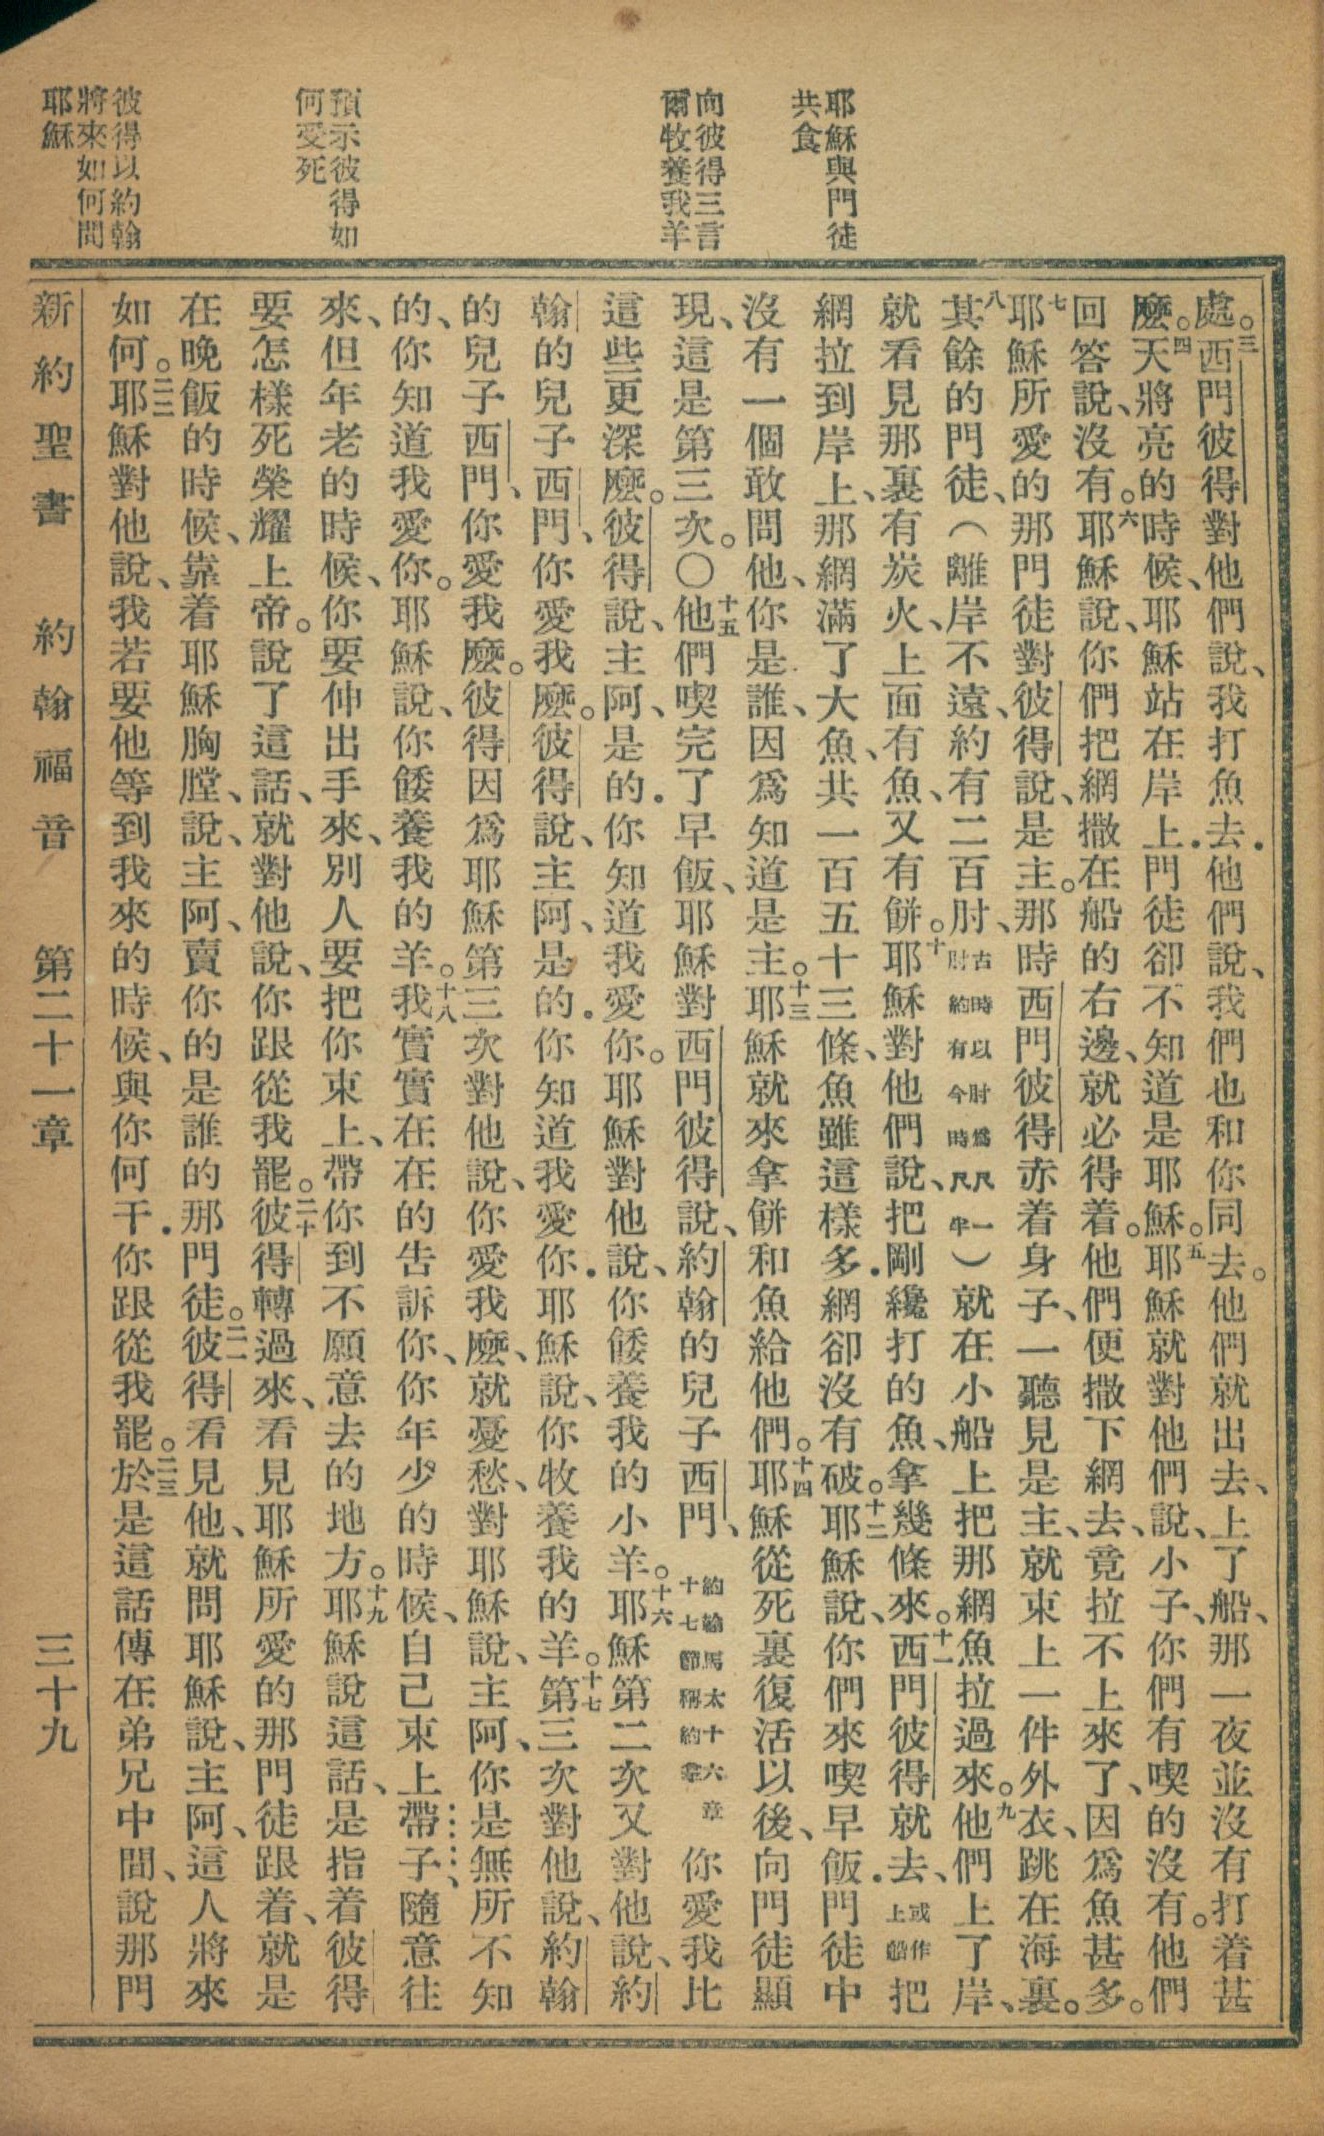 耶穌與門徒
共食
向彼得三言
爾牧養我羊
預示彼得如
何受死
彼得以約翰
將來如何問
耶穌
處。三西門彼得對他們說、我打魚去．他們說、我們也和你同去。他們就出去、上了船、那一夜並沒有打着甚
麼。四天將亮的時候、耶穌站在岸上．門徒卻不知道是耶穌。五耶穌就對他們說、小子、你們有喫的沒有。他們
回答說、沒有。六耶穌說、你們把網撒在船的右邊、就必得着。他們便撒下網去、竟拉不上來了、因爲魚甚多。
七耶穌所愛的那門徒對彼得說、是主。那時西門彼得赤着身子、一聽見是主、就束上一件外衣、跳在海裏。
八其餘的門徒、（離岸不遠、約有二百肘、古時以肘爲尺一肘約有今時尺半）就在小船上把那網魚拉過來。九他們上了岸、
就看見那裏有炭火、上面有魚、又有餅。十耶穌對他們說、把剛纔打的魚、拿幾條來。十一西門彼得就去、或作上船把
網拉到岸上、那網滿了大魚、共一百五十三條、魚雖這樣多．網卻沒有破。十二耶穌說、你們來喫早飯．門徒中
沒有一個敢問他、你是誰、因爲知道是主。十三耶穌就來拿餅和魚給他們。十四耶穌從死裏復活以後、向門徒顯
現、這是第三次。〇十五他們喫完了早飯、耶穌對西門彼得說、約翰的兒子西門、約翰馬太十六章十七節稱約拿你愛我比
這些更深麼。彼得說、主阿、是的．你知道我愛你。耶穌對他說、你餧養我的小羊。十六耶穌第二次又對他說、約
翰的兒子西門、你愛我麼。彼得說、主阿、是的．你知道我愛你．耶穌說、你牧養我的羊。十七第三次對他說、約翰
的兒子西門、你愛我麼。彼得因爲耶穌第三次對他說、你愛我麼、就憂愁、對耶穌說、主阿、你是無所不知
的、你知道我愛你。耶穌說、你餧養我的羊。十八我實實在在的告訴你、你年少的時候、自己束上帶子、隨意往
來、但年老的時候、你要伸出手來、別人要把你束上、帶你到不願意去的地方。十九耶穌說這話、是指着彼得
要怎樣死榮耀上帝。說了這話、就對他說、你跟從我罷。二十彼得轉過來、看見耶穌所愛的那門徒跟着、就是
在晚飯的時候、靠着耶穌胸膛、說、主阿、賣你的是誰的那門徒。二一彼得看見他、就問耶穌說、主阿、這人將來
如何。二二耶穌對他說、我若要他等到我來的時候、與你何干．你跟從我罷。二三於是這話傳在弟兄中間、說那門
新約聖書　約翰福音　第二十一章　三十九